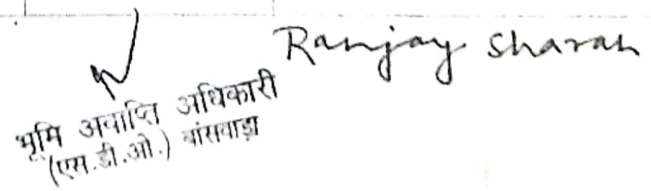 Ranjay Sharan
भूमि अवाप्ति अधिकारी
(एस.डी.ओ.) बांसवाड़ा